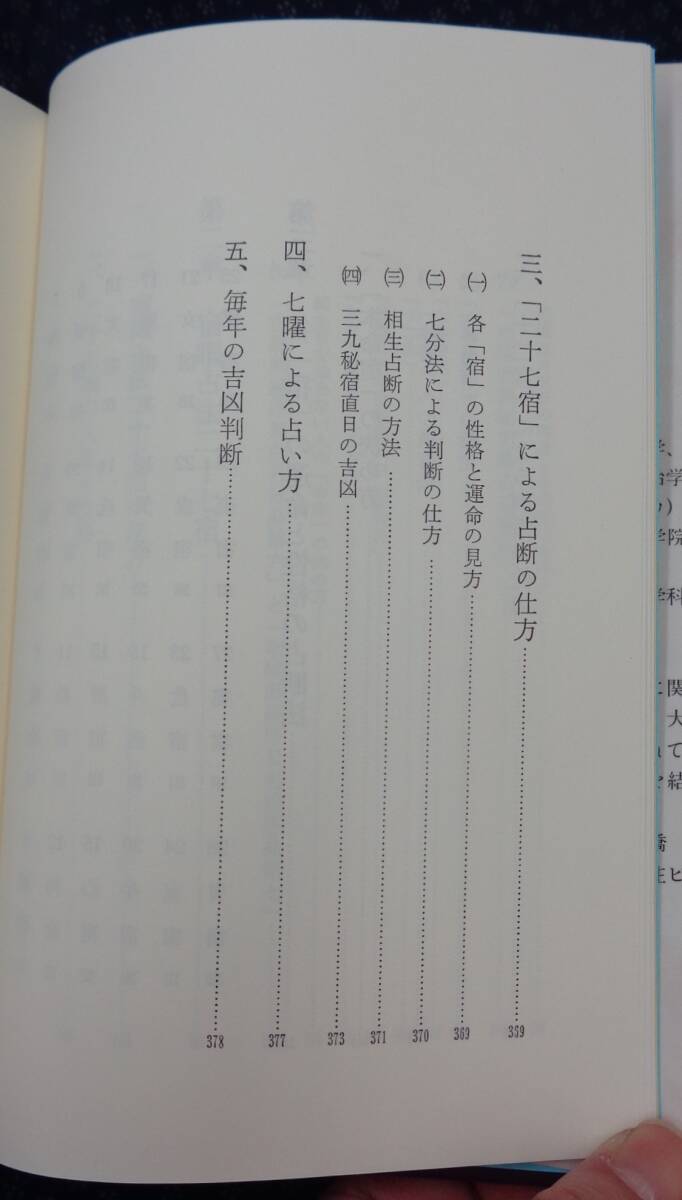 三、「二十七宿」による占断の仕方……359
㈠ 各「宿」の性格と運命の見方……369
㈡ 七分法による判断の仕方……370
㈢ 相生占断の方法……371
㈣ 三九秘宿直日の吉凶……373
四、七曜による占い方……377
五、毎年の吉凶判断……378